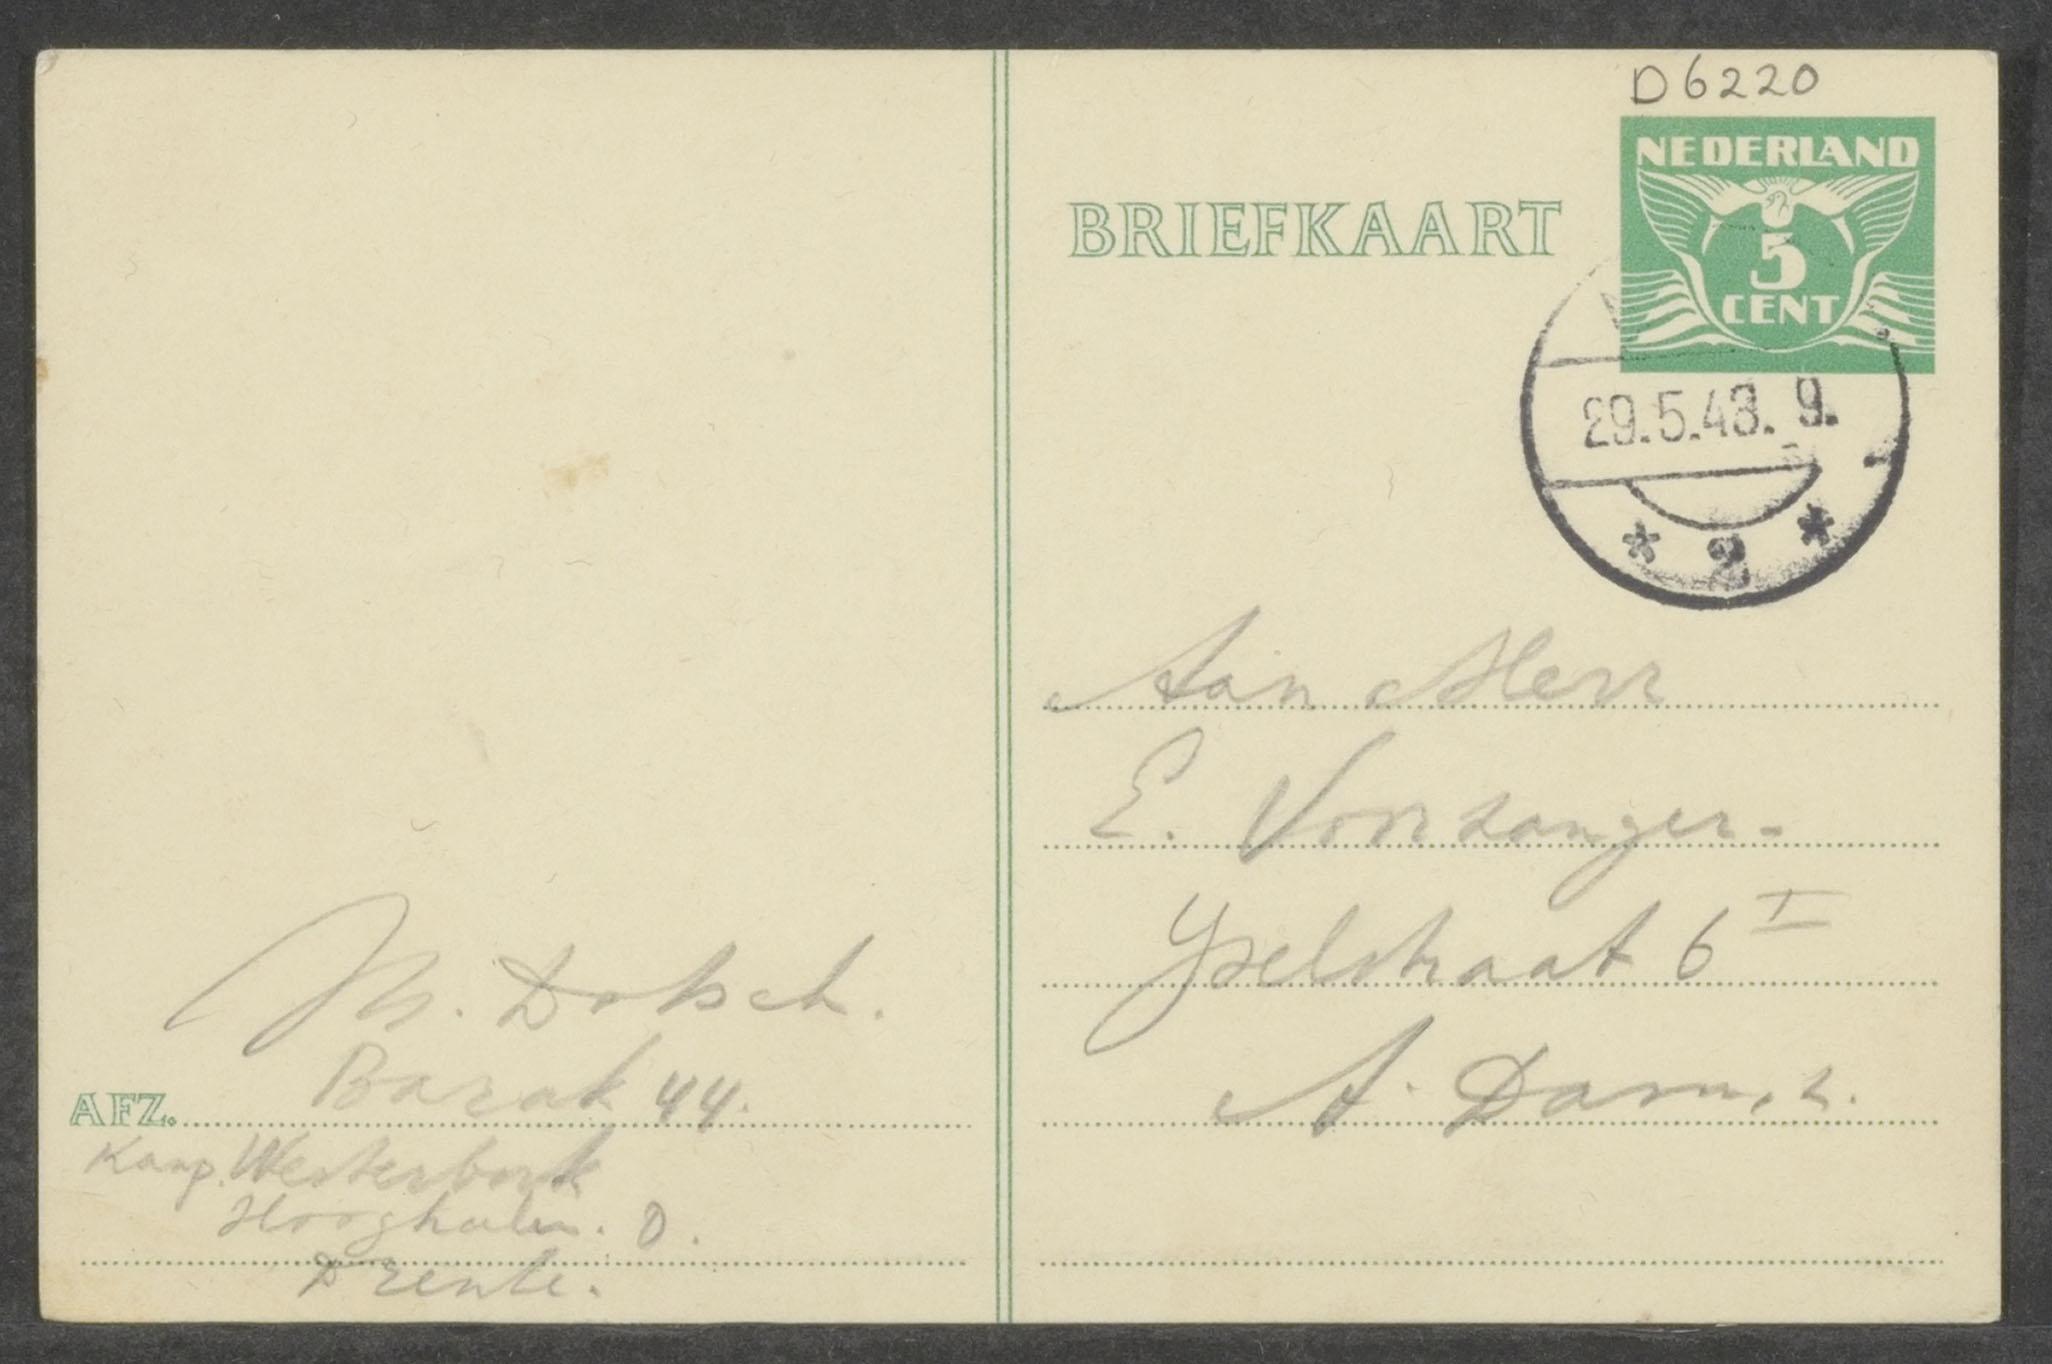 D6220
NEDERLAND
5
CENT
BRIEFKAART
29.5.43. 9.
* 2 *
Aan Herr
E. Voorzanger.
Yselstraat 6 I
A. Dam, z.
M. Dotsch.
Barak 44.
AFZ.
Kamp. Westerbork
Hooghalen. O.
Drente.